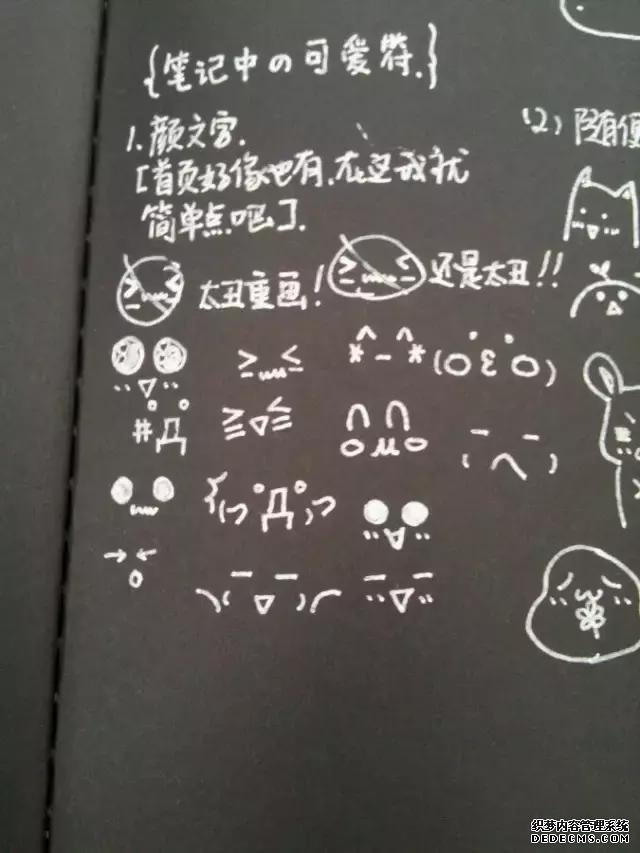 {笔记中の可爱符.}
1.颜文字.
[首页好像也有.在这我就
简单点吧].
太丑重画!
还是太丑!!
(2) 随便
织梦内容管理系统
DEDECMS.COM